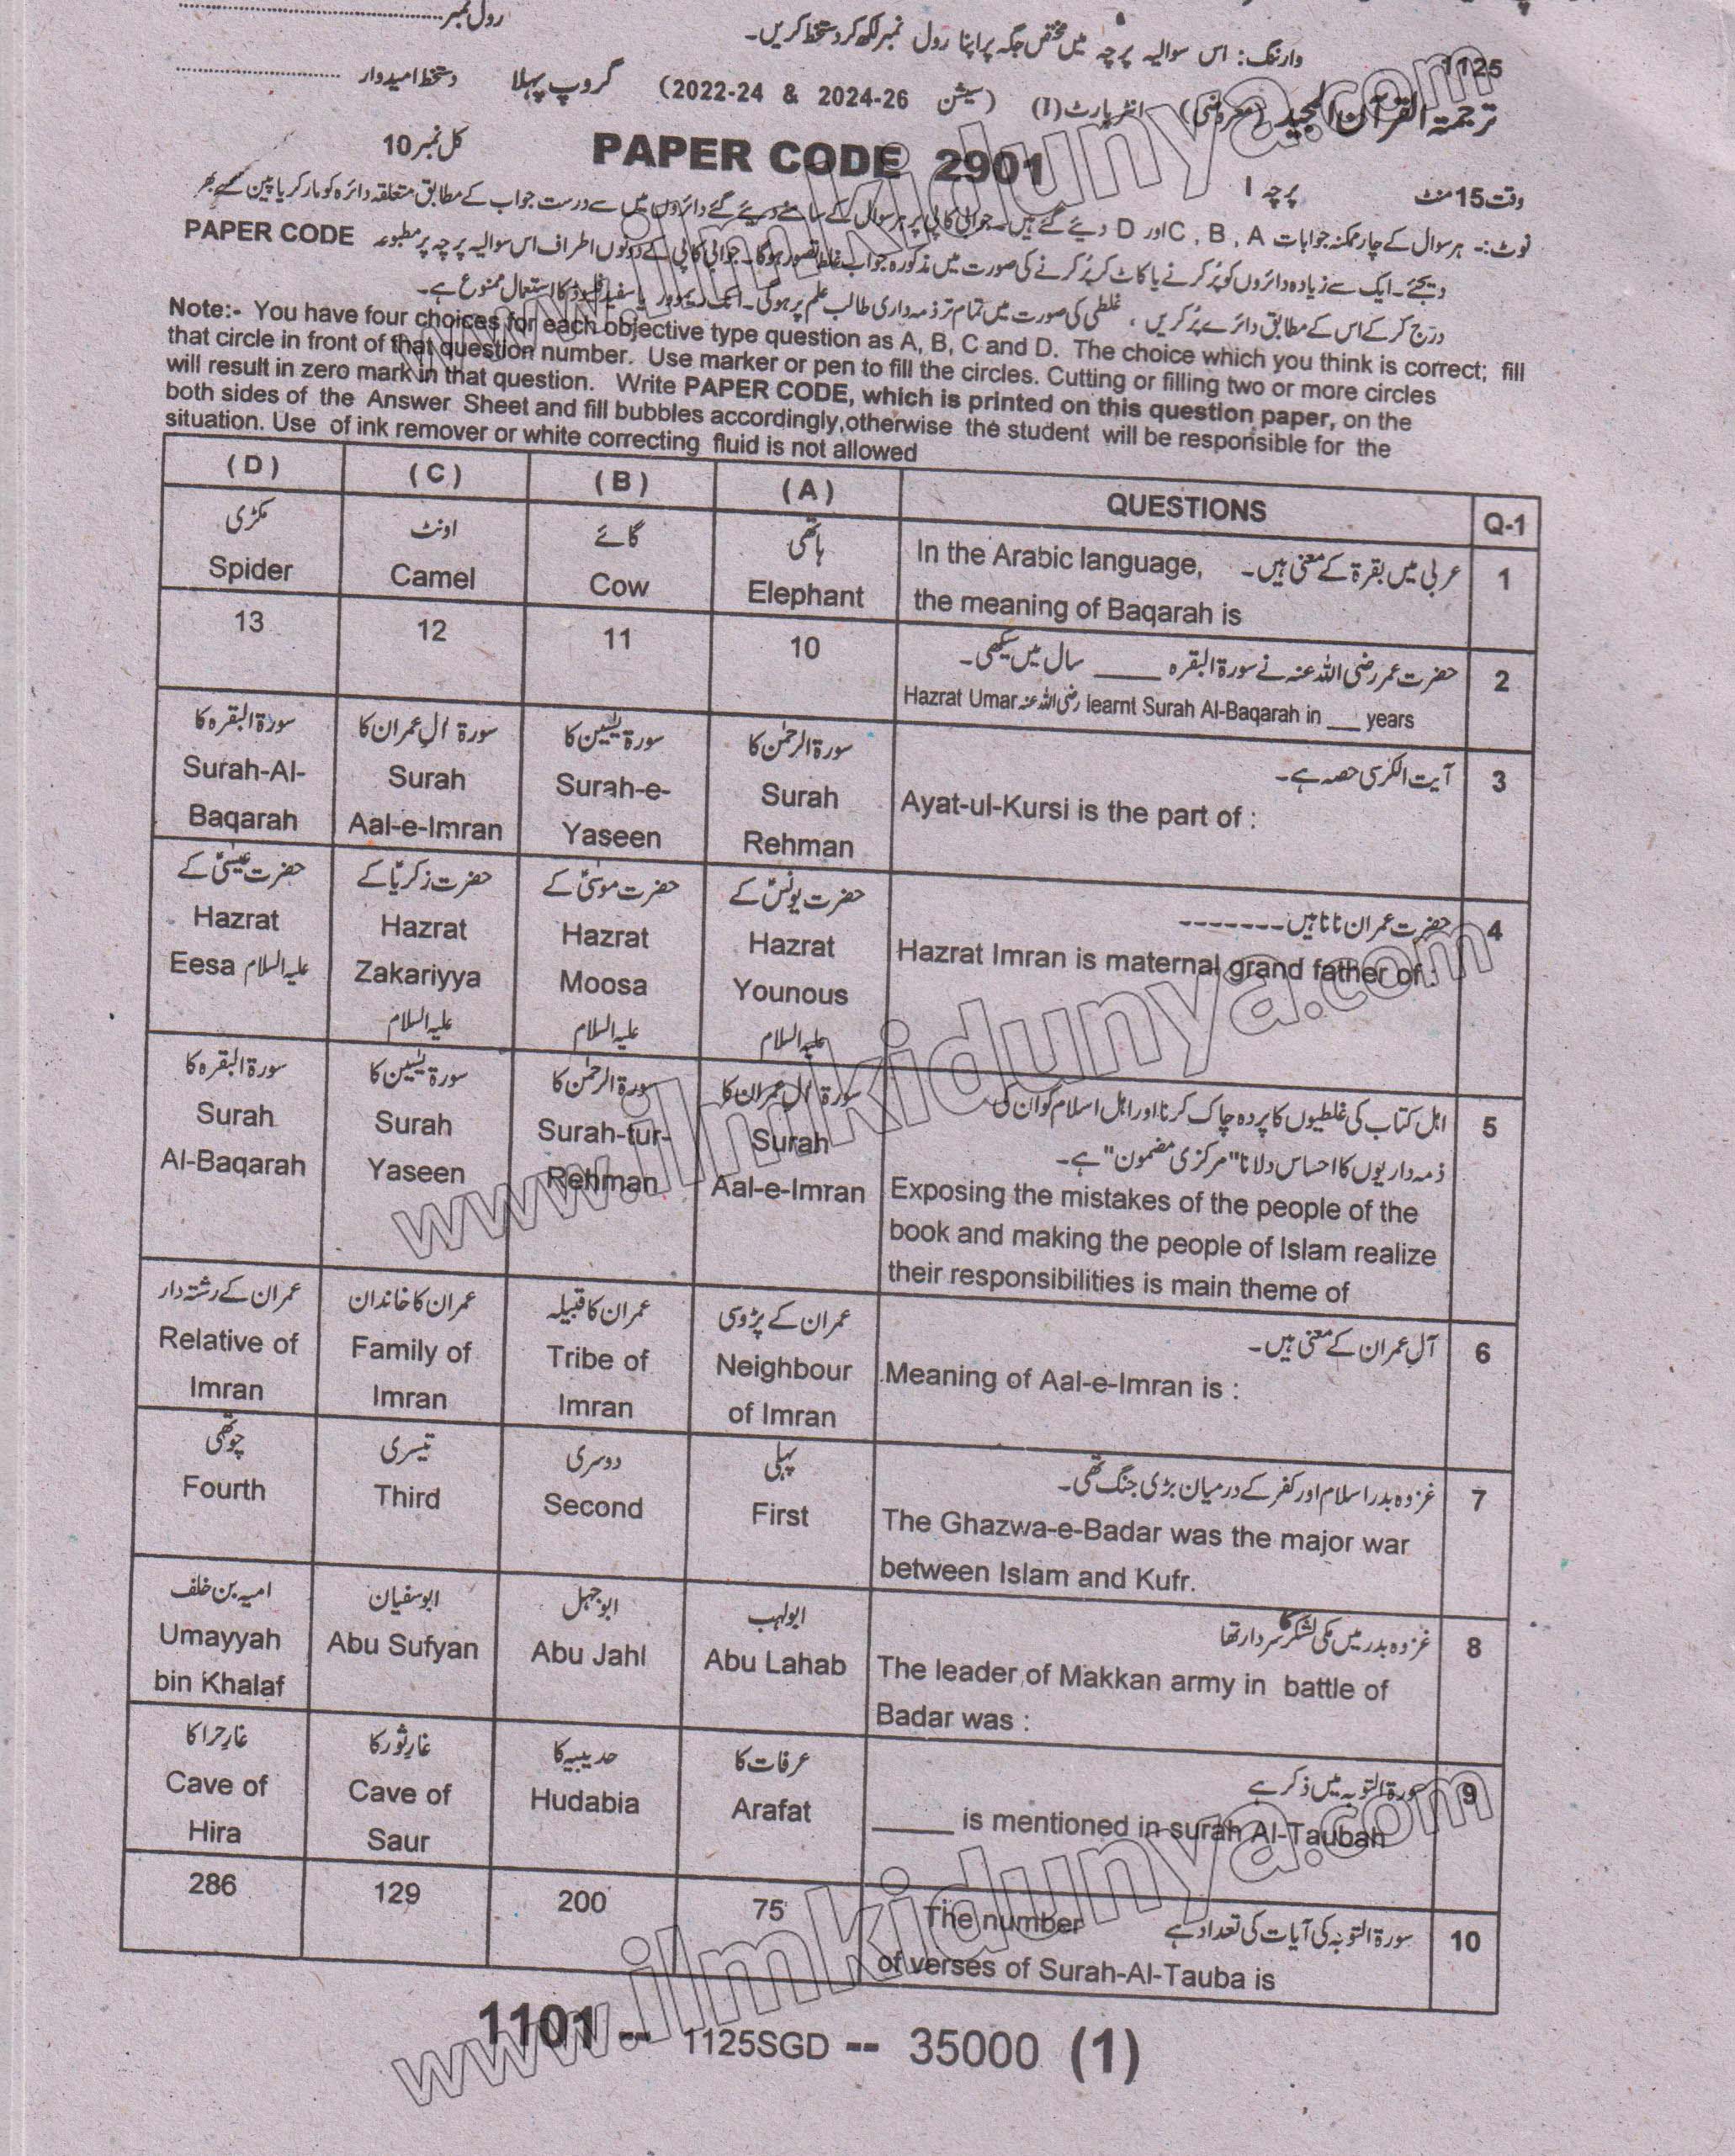 رول نمبر
وارننگ: اس سوالیہ پرچہ میں مختص جگہ پر اپنا رول نمبر لکھ کر دستخط کریں۔
1125
ترجمۃ القرآن المجید (معروضی) انٹر پارٹ (I) (سیشن 2024-26 & 2022-24) گروپ پہلا دستخط امیدوار
وقت 15 منٹ پرچہ I PAPER CODE 2901 کل نمبر 10
نوٹ:۔ ہر سوال کے چار ممکنہ جوابات A , B , C اور D دیئے گئے ہیں۔ جوابی کاپی پر ہر سوال کے سامنے دیئے گئے دائروں میں سے درست جواب کے مطابق متعلقہ دائرہ کو مارکر یا پین سے بھر
دیجئے۔ ایک سے زیادہ دائروں کو پُر کرنے یا کاٹ کر پُر کرنے کی صورت میں مذکورہ جواب غلط تصور ہوگا۔ جوابی کاپی کے دونوں اطراف اس سوالیہ پرچہ پر مطبوعہ PAPER CODE
درج کر کے اس کے مطابق دائرے پُر کریں ، غلطی کی صورت میں تمام تر ذمہ داری طالب علم پر ہوگی۔ انک ریموور یا سفید فلیوڈ کا استعمال ممنوع ہے۔
Note:- You have four choices for each objective type question as A, B, C and D. The choice which you think is correct; fill
that circle in front of that question number. Use marker or pen to fill the circles. Cutting or filling two or more circles
will result in zero mark in that question. Write PAPER CODE, which is printed on this question paper, on the
both sides of the Answer Sheet and fill bubbles accordingly,otherwise the student will be responsible for the
situation. Use of ink remover or white correcting fluid is not allowed
( D ) ( C ) ( B ) ( A ) QUESTIONS Q-1
مکڑی اونٹ گائے ہاتھی
Spider Camel Cow Elephant
عربی میں بقرۃ کے معنی ہیں۔ In the Arabic language,
the meaning of Baqarah is
1
13 12 11 10
حضرت عمر رضی اللہ عنہ نے سورۃ البقرہ ____ سال میں سیکھی۔
Hazrat Umar رضی اللہ عنہ learnt Surah Al-Baqarah in ___ years
2
سورۃ البقرہ کا سورۃ اٰل عمران کا سورۃ یٰسین کا سورۃ الرحمٰن کا
Surah-Al- Surah Surah-e- Surah
Baqarah Aal-e-Imran Yaseen Rehman
آیت الکرسی حصہ ہے۔
Ayat-ul-Kursi is the part of :
3
حضرت عیسیٰؑ کے حضرت زکریاؑ کے حضرت موسیٰؑ کے حضرت یونسؑ کے
Hazrat Hazrat Hazrat Hazrat
Eesa علیہ السلام Zakariyya Moosa Younous
علیہ السلام علیہ السلام علیہ السلام
حضرت عمران نانا ہیں -------
Hazrat Imran is maternal grand father of :
4
سورۃ البقرہ کا سورۃ یٰسین کا سورۃ الرحمٰن کا سورۃ اٰل عمران کا
Surah Surah Surah-tur- Surah
Al-Baqarah Yaseen Rehman Aal-e-Imran
اہل کتاب کی غلطیوں کا پردہ چاک کرنا اور اہل اسلام کو ان کی
ذمہ داریوں کا احساس دلانا "مرکزی مضمون" ہے۔
Exposing the mistakes of the people of the
book and making the people of Islam realize
their responsibilities is main theme of
5
عمران کے رشتہ دار عمران کا خاندان عمران کا قبیلہ عمران کے پڑوسی
Relative of Family of Tribe of Neighbour
Imran Imran Imran of Imran
آلِ عمران کے معنی ہیں۔
Meaning of Aal-e-Imran is :
6
چوتھی تیسری دوسری پہلی
Fourth Third Second First
غزوہ بدر اسلام اور کفر کے درمیان بڑی جنگ تھی۔
The Ghazwa-e-Badar was the major war
between Islam and Kufr.
7
امیہ بن خلف ابوسفیان ابوجہل ابولہب
Umayyah Abu Sufyan Abu Jahl Abu Lahab
bin Khalaf
غزوہ بدر میں مکی لشکر کا سردار تھا
The leader of Makkan army in battle of
Badar was :
8
غار حرا کا غار ثور کا حدیبیہ کا عرفات کا
Cave of Cave of Hudabia Arafat
Hira Saur
سورۃ التوبہ میں ذکر ہے
_____ is mentioned in surah Al-Taubah
9
286 129 200 75
سورۃ التوبہ کی آیات کی تعداد ہے The number
of verses of Surah-Al-Tauba is
10
1101 -- 1125SGD -- 35000 (1)
www.ilmkidunya.com
www.ilmkidunya.com
www.ilmkidunya.com